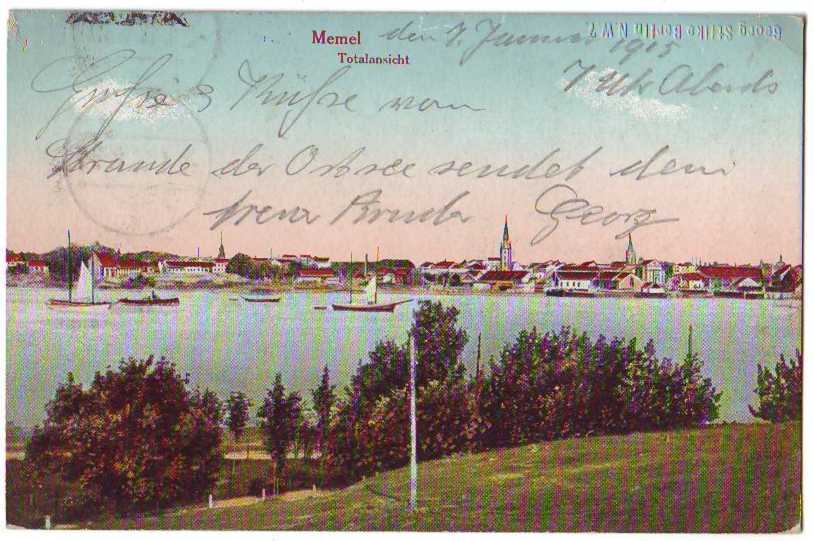 Memel
Totalansicht
den 7. Januar 1915
7 Uhr Abends
Grüße & Küße vom
Strande der Ostsee sendet dein
treuer Bruder Georg
Georg Stilke Berlin N.W.7